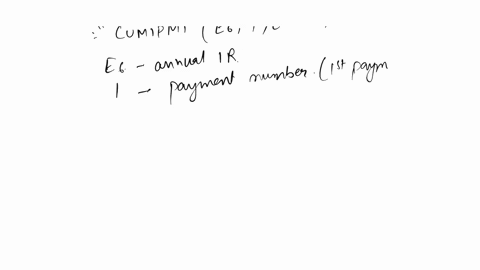 ∵ CUMIPMT ( E6, 1,
E6 - annual IR
1 → payment number. (1st paym